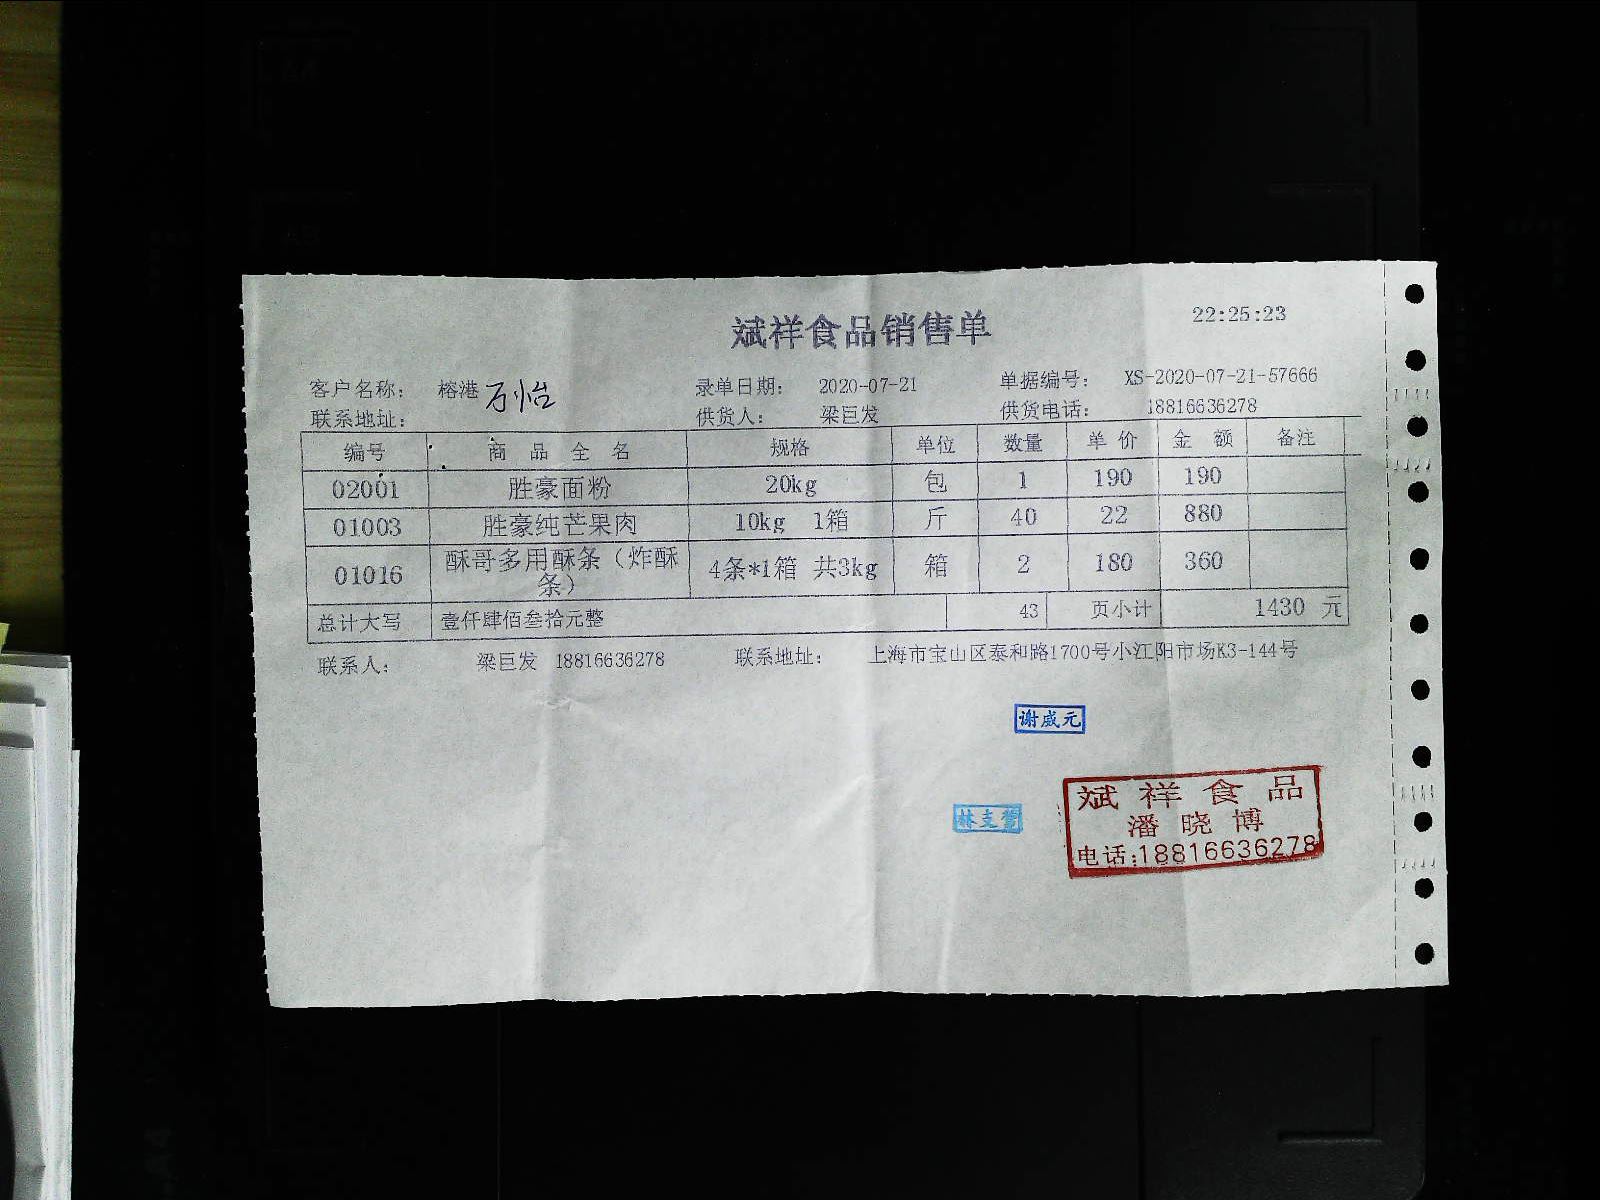 斌祥食品销售单
22:25:23
客户名称： 榕港 万怡 录单日期： 2020-07-21 单据编号： XS-2020-07-21-57666
联系地址： 供货人： 梁巨发 供货电话： 18816636278
编号 商 品 全 名 规格 单位 数量 单 价 金 额 备注
02001 胜豪面粉 20kg 包 1 190 190
01003 胜豪纯芒果肉 10kg 1箱 斤 40 22 880
01016 酥哥多用酥条（炸酥 4条*1箱 共3kg 箱 2 180 360
条）
总计大写 壹仟肆佰叁拾元整 43 页小计 1430 元
联系人： 梁巨发 18816636278 联系地址： 上海市宝山区泰和路1700号小江阳市场K3-144号
谢威元
斌祥食品
潘晓博
电话:18816636278